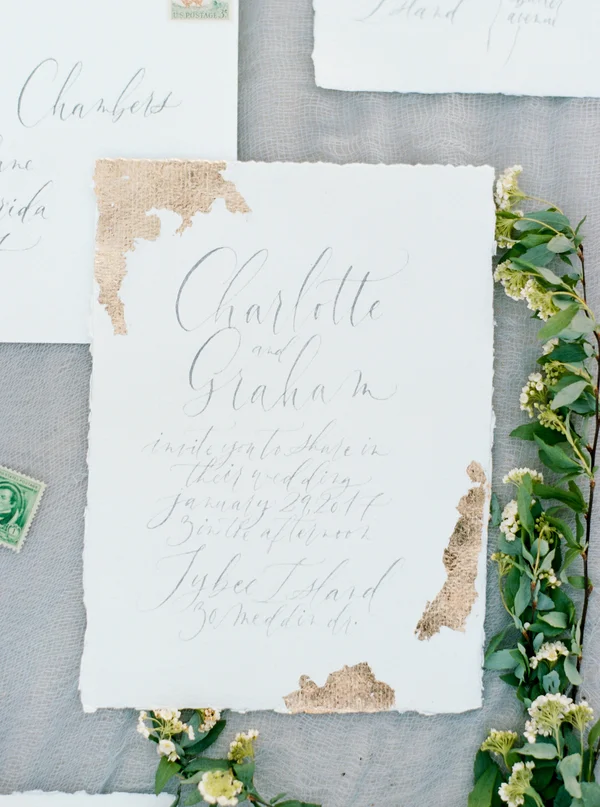 POSTAGE
Island
Chambers
Charlotte
and
Graham
invite you to share in
their wedding
january 29, 2017
3 in the afternoon
Tybee Island
30 meddin dr.